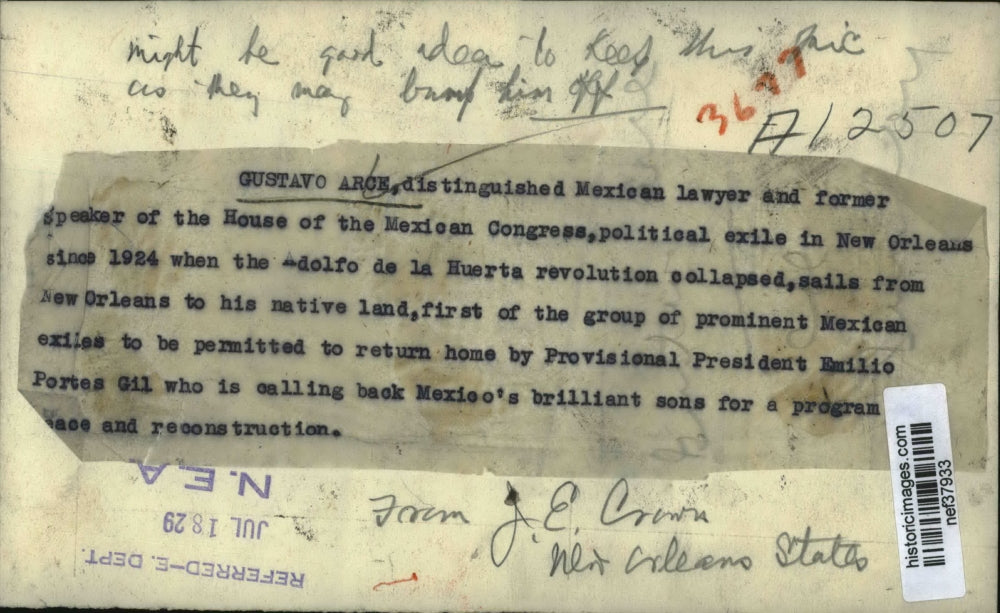 might be good idea to keep this pic
as they may bump him off
3677
A12507
GUSTAVO ARCE,distinguished Mexican lawyer and former
speaker of the House of the Mexican Congress,political exile in New Orleans
since 1924 when the Adolfo de la Huerta revolution collapsed,sails from
New Orleans to his native land,first of the group of prominent Mexican
exiles to be permitted to return home by Provisional President Emilio
Portes Gil who is calling back Mexico's brilliant sons for a program
eace and reconstruction.
N.E.A
JUL 18 29
REFERRED-E. DEPT.
From J. E. Crown
New Orleans States
historicimages.com
nef37933